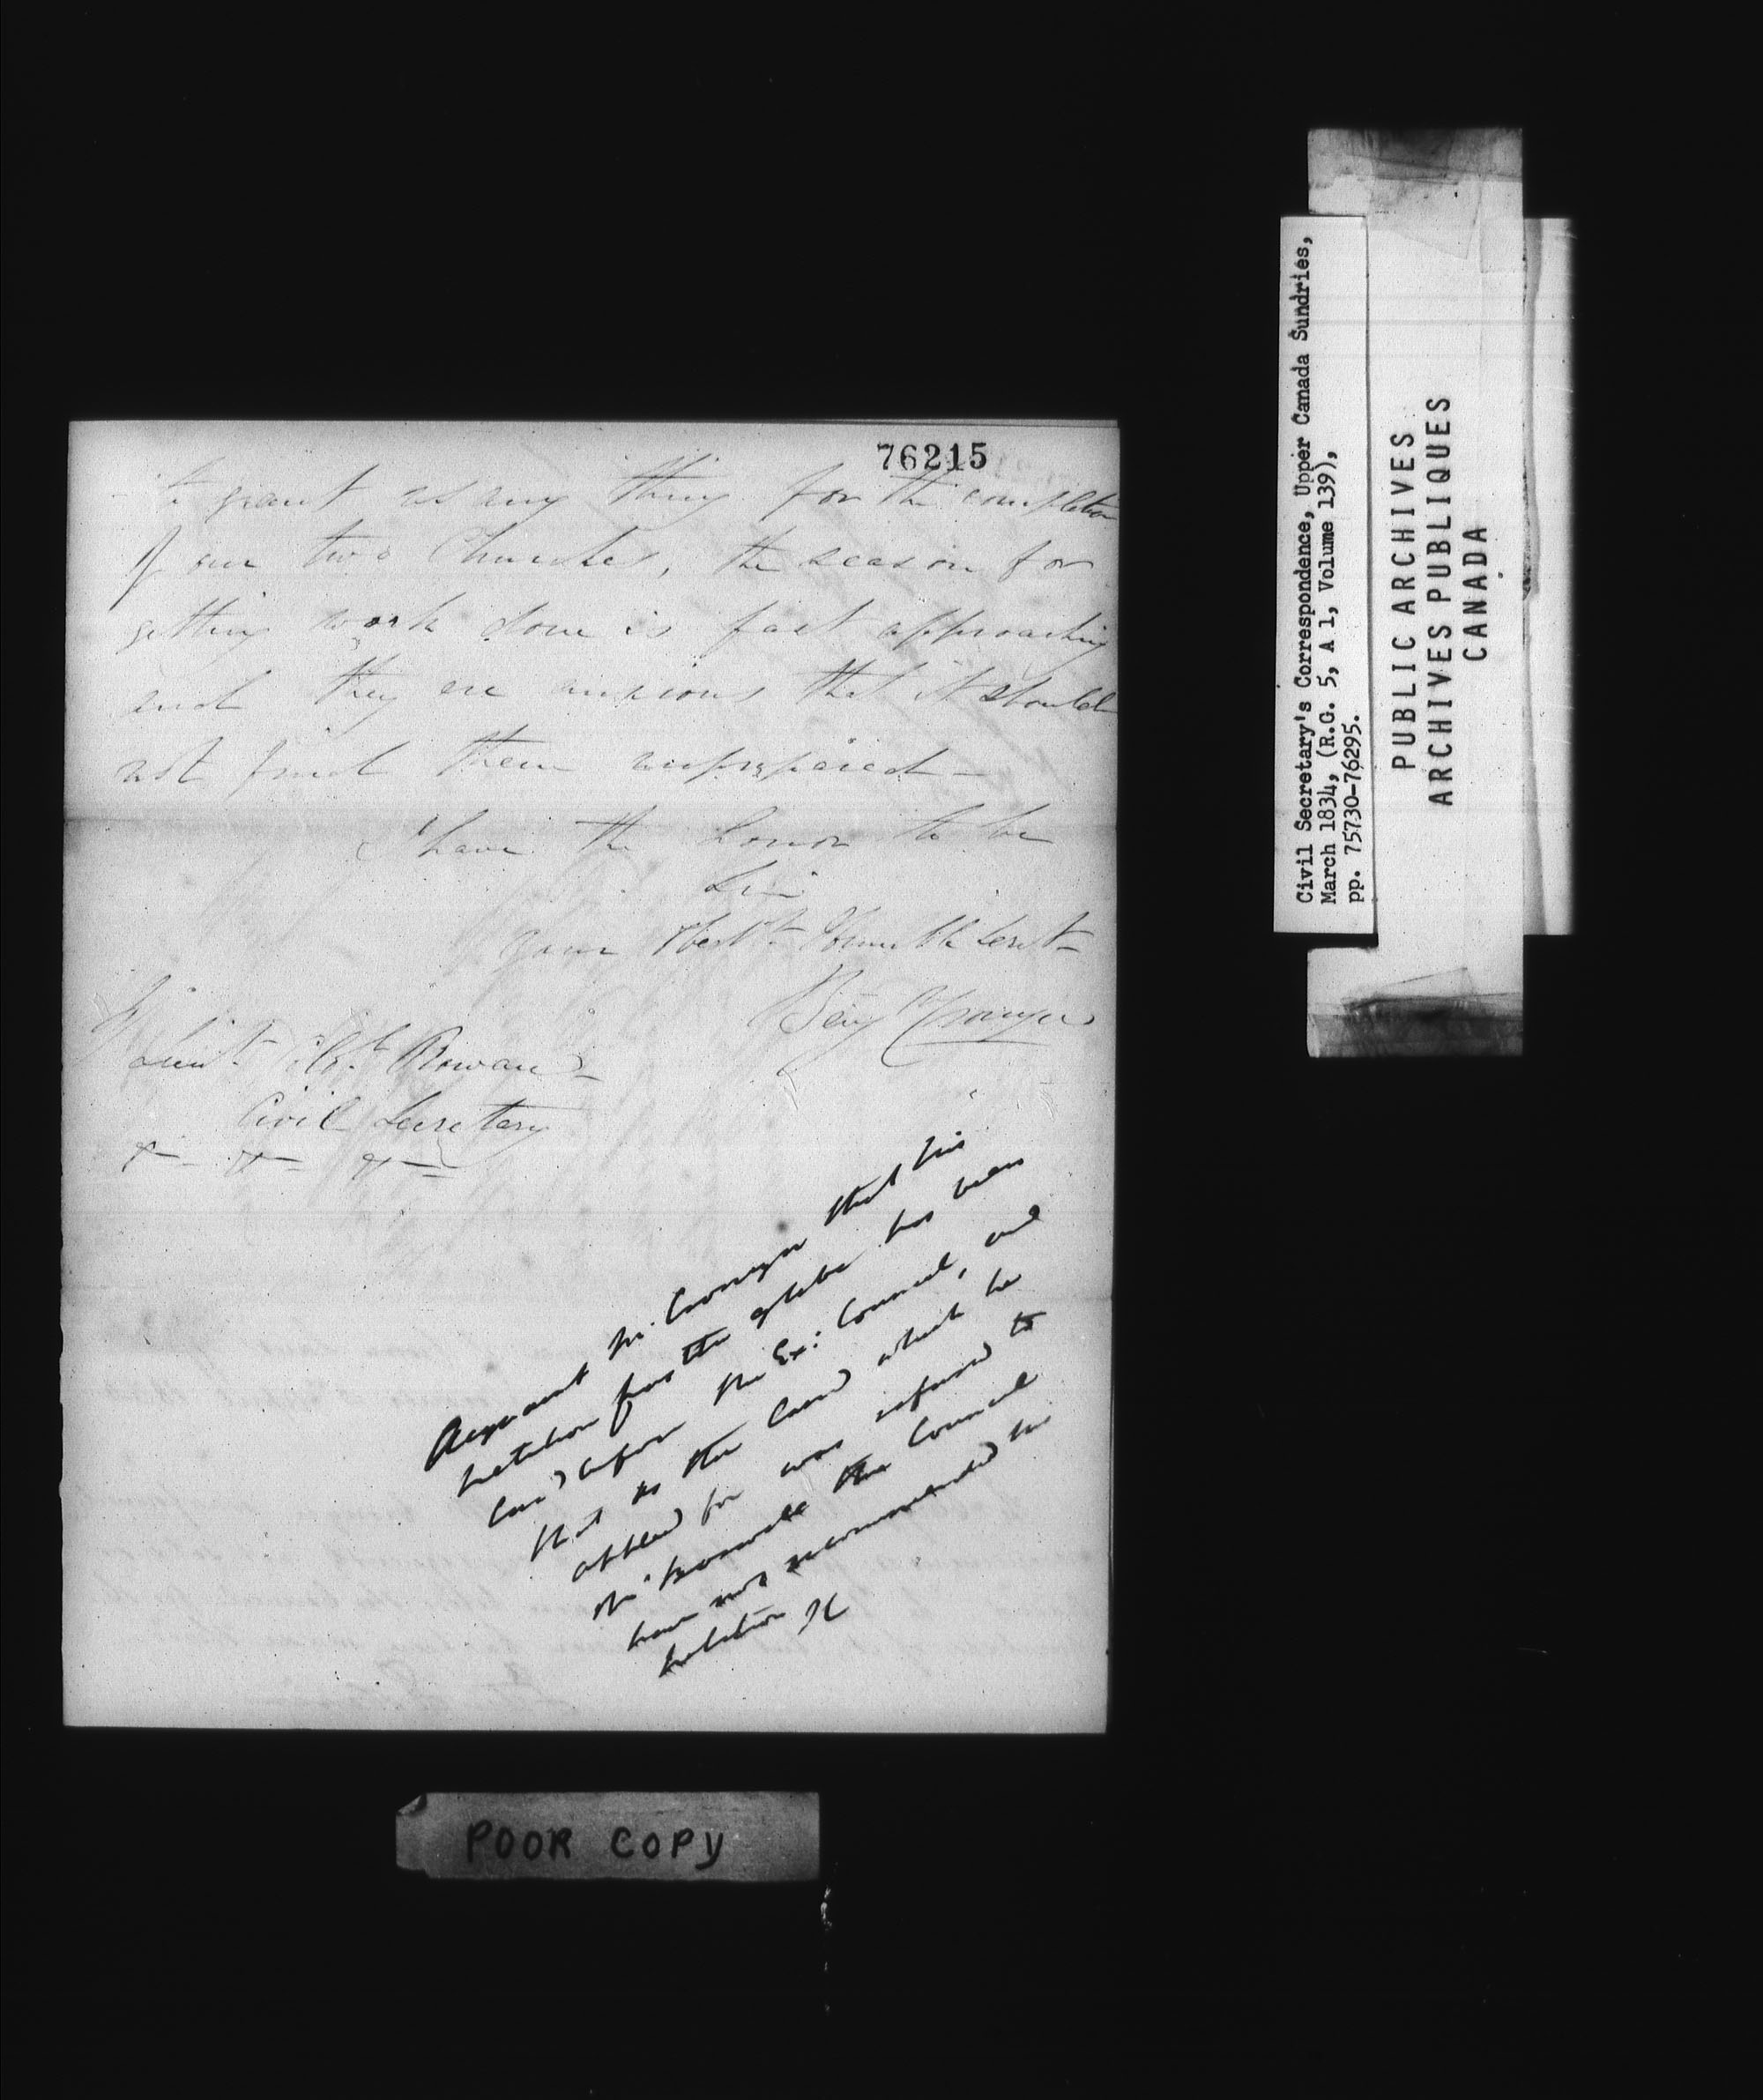 76215
to grant us any thing for the completion
of our two Churches, the season for
getting work done is fast approaching
and they are anxious that it should
not find them unprepared -
I have the honor to be
Sir
your Obedt Humble Servt
Benj Cronyn
Lieut Colol Rowan
Civil Secretary
& & &
Acquaint Mr. Cronyn that his
petition for the glebe has been
laid before the Ex: Council, and
that as the land which he
applied for was refused to
Mr. Boswell the Council
have not recommended the
petition
POOR COPY
Civil Secretary's Correspondence, Upper Canada Sundries,
March 1834, (R.G. 5, A 1, Volume 139),
pp. 75730-76295.
PUBLIC ARCHIVES
ARCHIVES PUBLIQUES
CANADA